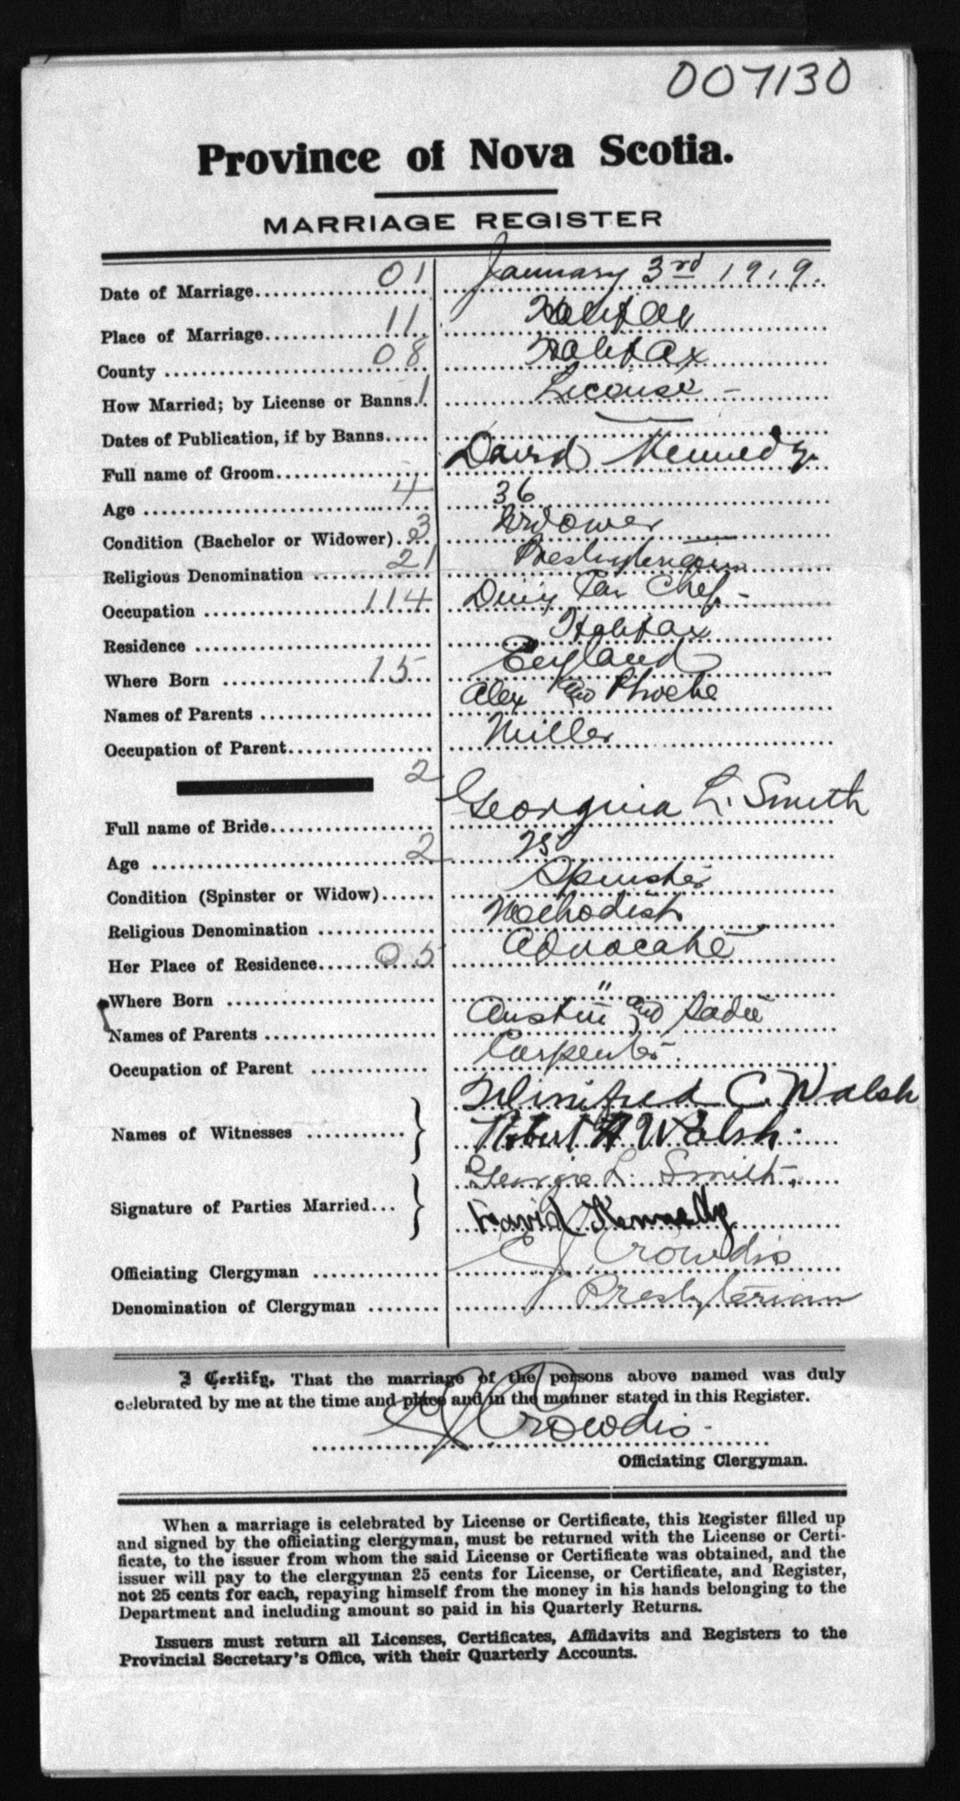 007130
Province of Nova Scotia.
MARRIAGE REGISTER
Date of Marriage 01 January 3rd 1919.
Place of Marriage 11 Halifax
County 08 Halifax
How Married; by License or Banns 1 License -
Dates of Publication, if by Banns —
Full name of Groom David Kennedy
Age 4 36
Condition (Bachelor or Widower) 3 Widower
Religious Denomination 21 Presbyterian
Occupation 114 Car Chef -
Residence Halifax
Where Born 15 England
Names of Parents Alex and Phoebe
Occupation of Parent Miller
2
Full name of Bride Georgina L. Smith
Age 2 25
Condition (Spinster or Widow) Spinster
Religious Denomination Methodist
Her Place of Residence 05 Advocate
Where Born "
Names of Parents Austin and Sadie
Occupation of Parent Carpenter.
Names of Witnesses Winifred C. Walsh
Robert H Walsh.
Signature of Parties Married Georgie L. Smith,
David Kennedy
Officiating Clergyman E J Crowdis
Denomination of Clergyman Presbyterian
I Certify, That the marriage of the persons above named was duly
celebrated by me at the time and place and in the manner stated in this Register.
E J Crowdis.
Officiating Clergyman.
When a marriage is celebrated by License or Certificate, this Register filled up
and signed by the officiating clergyman, must be returned with the License or Certi-
ficate, to the issuer from whom the said License or Certificate was obtained, and the
issuer will pay to the clergyman 25 cents for License, or Certificate, and Register,
not 25 cents for each, repaying himself from the money in his hands belonging to the
Department and including amount so paid in his Quarterly Returns.
Issuers must return all Licenses, Certificates, Affidavits and Registers to the
Provincial Secretary's Office, with their Quarterly Accounts.